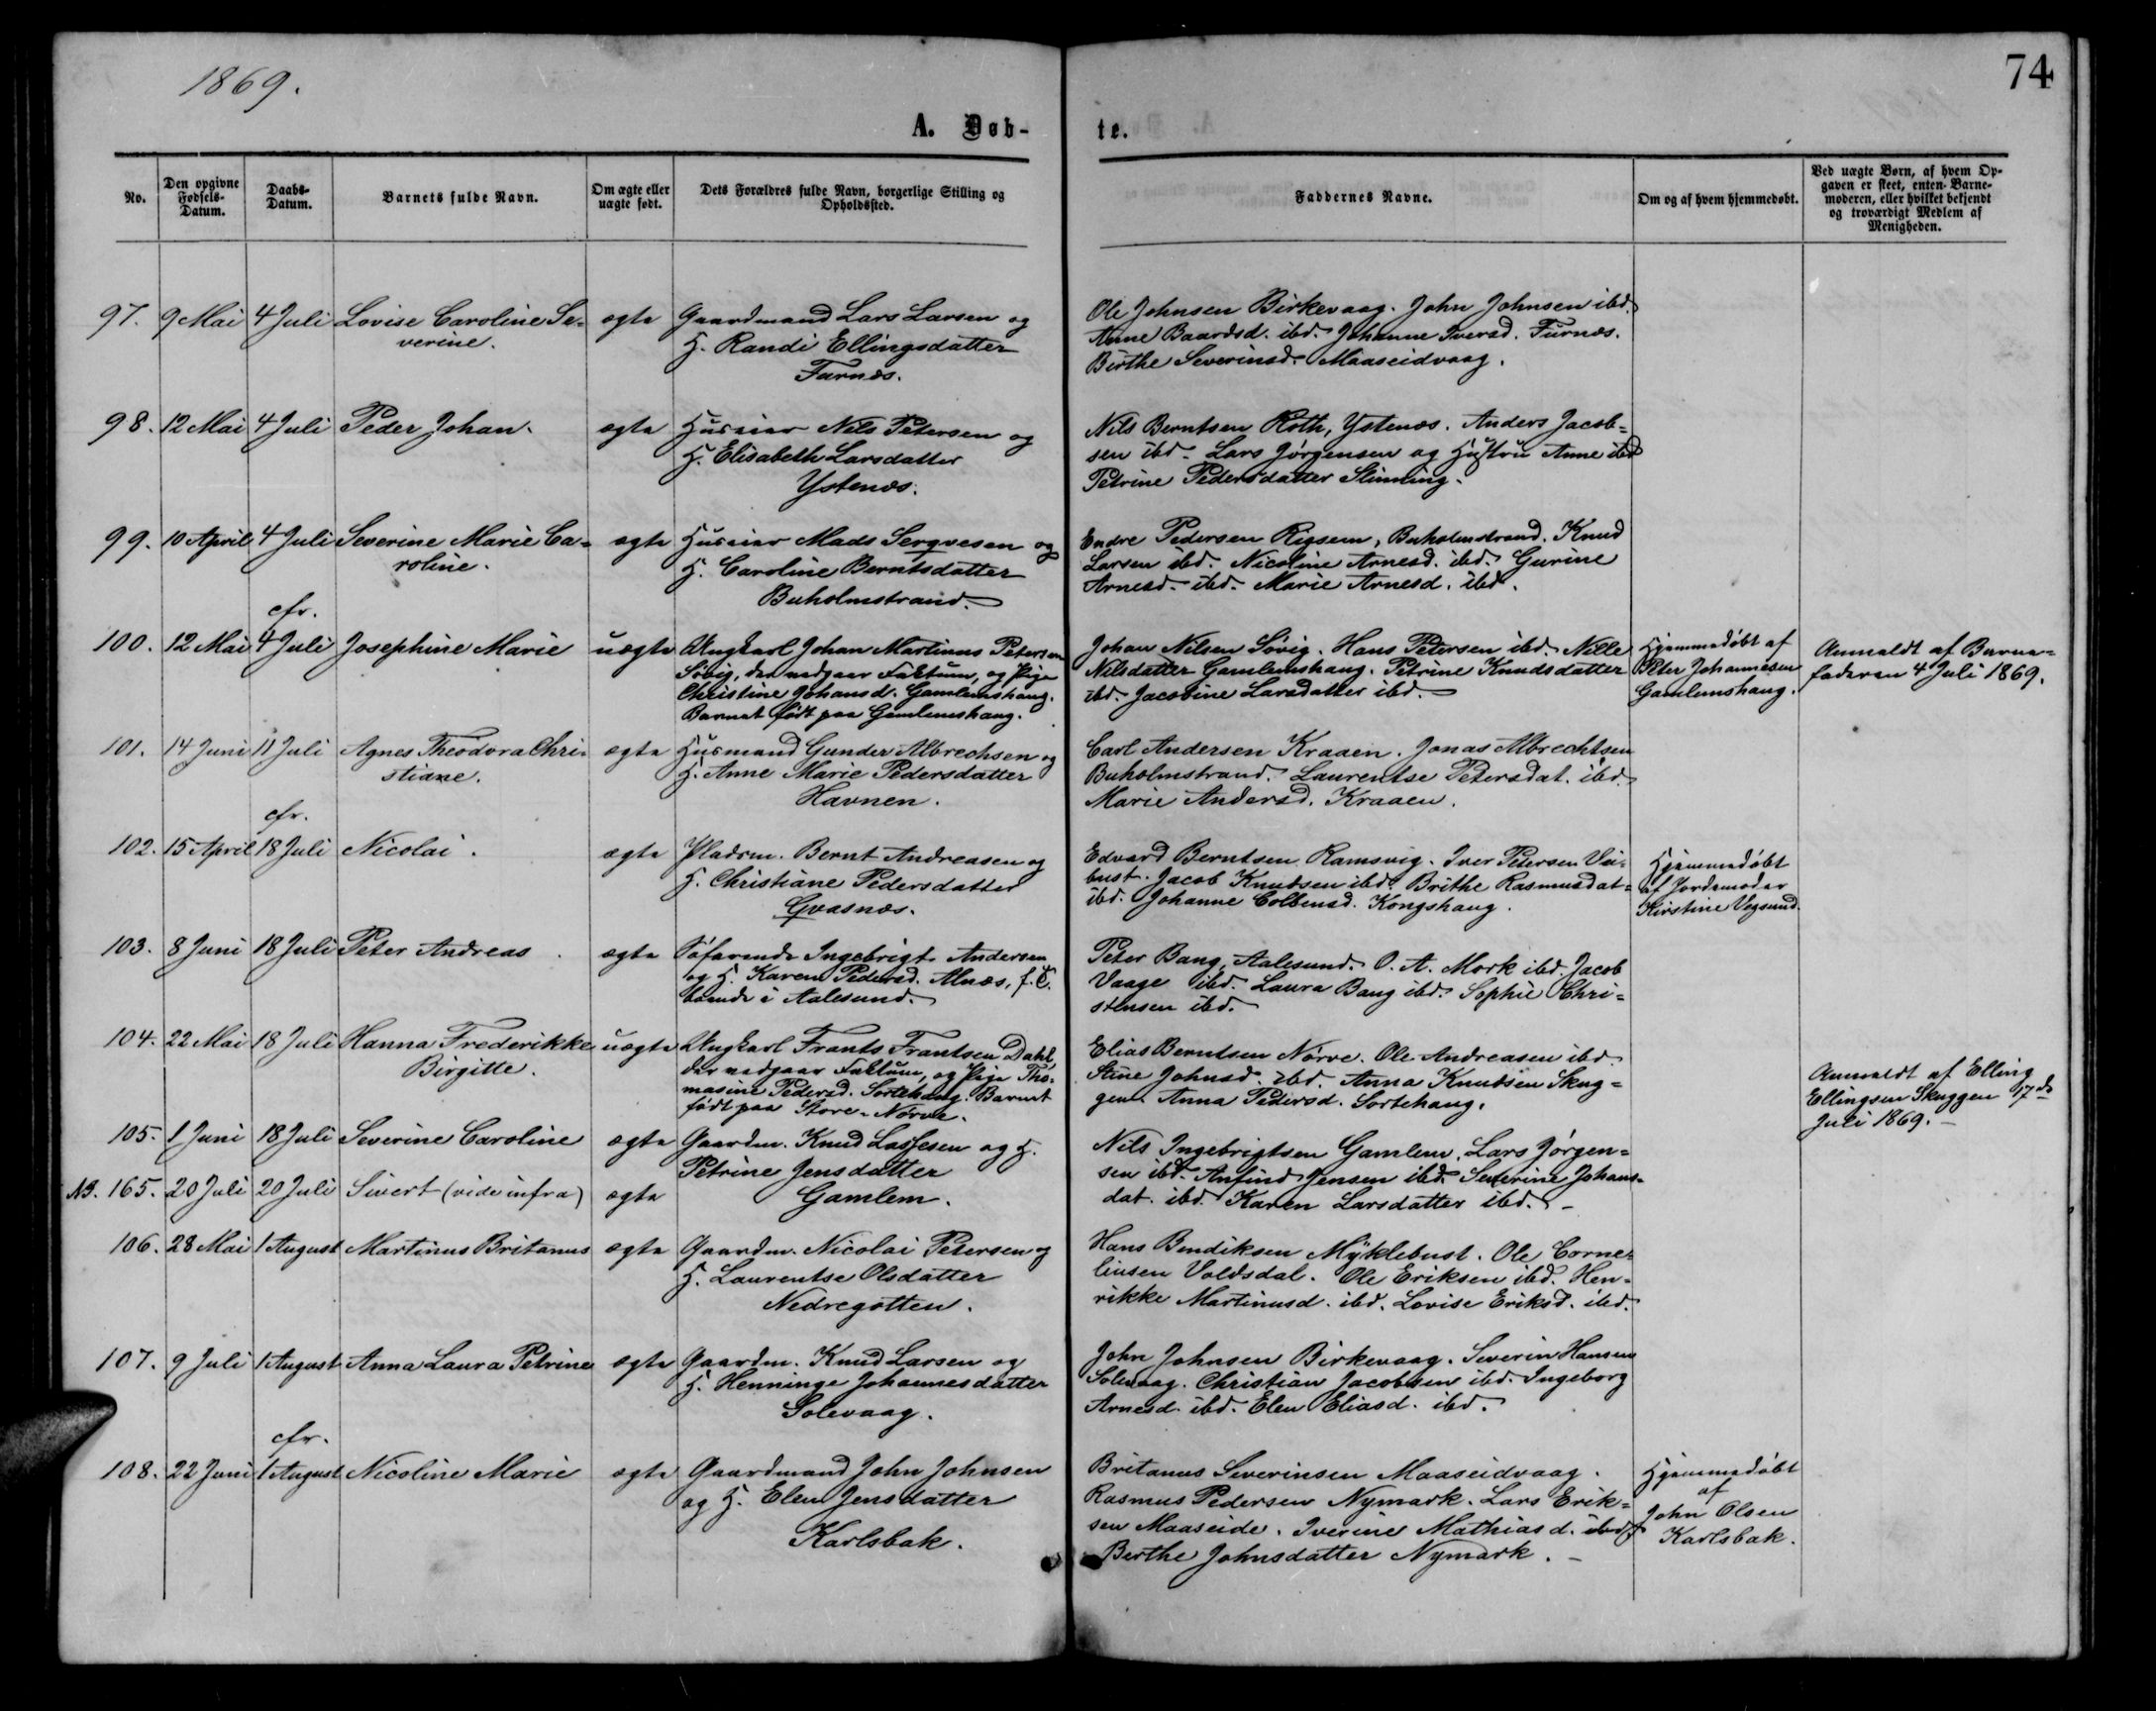 1869.
74
A. Døb-
te.
No.
Den opgivne Fødsels-Datum.
Daabs-Datum.
Barnets fulde Navn.
Om ægte eller uægte født.
Dets Forældres fulde Navn, borgerlige Stilling og Opholdssted.
Faddernes Navne.
Om og af hvem hjemmedøbt.
Ved uægte Børn, af hvem Op-
gaven er skeet, enten Barne-
moderen, eller hvilket bekjendt
og troværdigt Medlem af
Menigheden.
97. 9 Mai 4 Juli Lovise Caroline Se-
verine.
ægte
Gaardmand Lars Larsen og
H. Randi Ellingsdatter
Furnæs.
Ole Johnsen Birkevaag. John Johnsen ibd.
Anne Baardsd. ibd. Johanne Iversd. Furnæs.
Birthe Severinsd. Maaseidvaag.
98. 12 Mai 4 Juli Peder Johan.
ægte
Huseier Nils Petersen og
H. Elisabeth Larsdatter
Ystenæs.
Nils Berntsen Roth, Ystenæs. Anders Jacob-
sen ibd. Lars Jørgensen og Hustru Anne ibd
Petrine Pedersdatter Slinning.
99. 10 April 4 Juli Severine Marie Ca-
roline.
ægte
Huseier Mads Sergvesen og
H. Caroline Berntsdatter
Buholmstrand.
Endre Pedersen Rigsem, Buholmstrand. Knud
Larsen ibd. Nicoline Arnesd. ibd. Gurine
Arnesd. ibd. Marie Arnesd. ibd.
cfr.
100. 12 Mai 4 Juli Josephine Marie
uægte
Ungkarl Johan Martinus Petersen
Søvig, der vedgaar Faktum, og Pige
Christine Johansd. Gamlemshaug.
Barnet født paa Gamlemshaug.
Johan Nilsen Søvig. Hans Petersen ibd. Nille
Nilsdatter Gamlemshaug. Petrine Knudsdatter
ibd. Jacobine Larsdatter ibd.
Hjemmedøbt af
Peter Johannesen
Gamlemshaug.
Anmeldt af Barne-
faderen 4 Juli 1869.
101. 14 Juni 11 Juli Agnes Theodora Chri-
stiane.
ægte
Husmand Gunder Albrechsen og
H. Anne Marie Pedersdatter
Havnen.
Carl Andersen Kraaen. Jonas Albrechtsen
Buholmstrand. Laurentse Petersdat. ibd.
Marie Andersd. Kraaen.
cfr.
102. 15 April 18 Juli Nicolai.
ægte
Pladsm. Bernt Andreasen og
H. Christiane Pedersdatter
Gvasnæs.
Edvard Berntsen Ramsvig. Iver Petersen Vei-
bust. Jacob Knudsen ibd. Brithe Rasmusdat-
ibd. Johanne Colbensd. Kongshaug.
Hjemmedøbt
af Jordemoder
Kirstine Vegsund.
103. 8 Juni 18 Juli Peter Andreas
ægte
Søfarende Ingebrigt Andersen
og H. Karen Pedersd. Alnæs, f. T.
boende i Aalesund.
Peter Bang, Aalesund. O. A. Mork ibd. Jacob
Vaage ibd. Laura Bang ibd. Sophie Chri-
stensen ibd.
104. 22 Mai 18 Juli Hanna Frederikke
Birgitte.
uægte
Ungkarl Frants Frantsen Dahl,
der vedgaar Faktum, og Pige Tho-
masine Pedersd. Sortehaug. Barnet
født paa Store-Nørve.
Elias Berntsen Nørve. Ole Andreasen ibd
Stine Johnsd. ibd. Anna Knudsen Skug-
gen. Anna Pedersd. Sortehaug.
Anmeldt af Elling
Ellingsen Skuggen 17de
Juli 1869.
105. 1 Juni 18 Juli Severine Caroline
ægte
Gaardm. Knud Lassesen og H.
Petrine Jensdatter
Gamlem.
Nils Ingebrigtsen Gamlem. Lars Jørgen-
sen ibd. Anfind Jensen ibd. Severine Johans-
dat. ibd. Karen Larsdatter ibd.
NB. 165. 20 Juli 20 Juli Sivert (vide infra)
ægte
106. 28 Mai 1 August Martinus Britanus
ægte
Gaardm. Nicolai Petersen og
H. Laurentse Olsdatter
Nedregotten.
Hans Bendiksen Myklebust. Ole Corne-
liusen Voldsdal. Ole Eriksen ibd. Hen-
rikke Martinusd. ibd. Lovise Eriksd. ibd.
107. 9 Juli 1 August Anna Laura Petrine
ægte
Gaardm. Knud Larsen og
H. Henninge Johannesdatter
Solevaag.
John Johnsen Birkevaag. Severin Hansen
Solevaag. Christian Jacobsen ibd. Ingeborg
Arnesd. ibd. Elen Eliasd. ibd.
cfr.
108. 22 Juni 1 August Nicoline Marie
ægte
Gaardmand John Johnsen
og H. Elen Jensdatter
Karlsbak.
Britanus Severinsen Maaseidvaag.
Rasmus Pedersen Nymark. Lars Erik-
sen Maaseide. Iverine Mathiasd. ibd.
Berthe Johnsdatter Nymark.
Hjemmedøbt
af
John Olsen
Karlsbak.